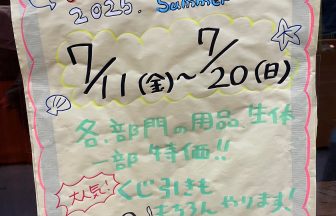 2025. Summer
7/11(金)〜7/20(日)
各部門の用品、生体
一部 特価!!
大人気!
くじ引きも
もちろん やります!